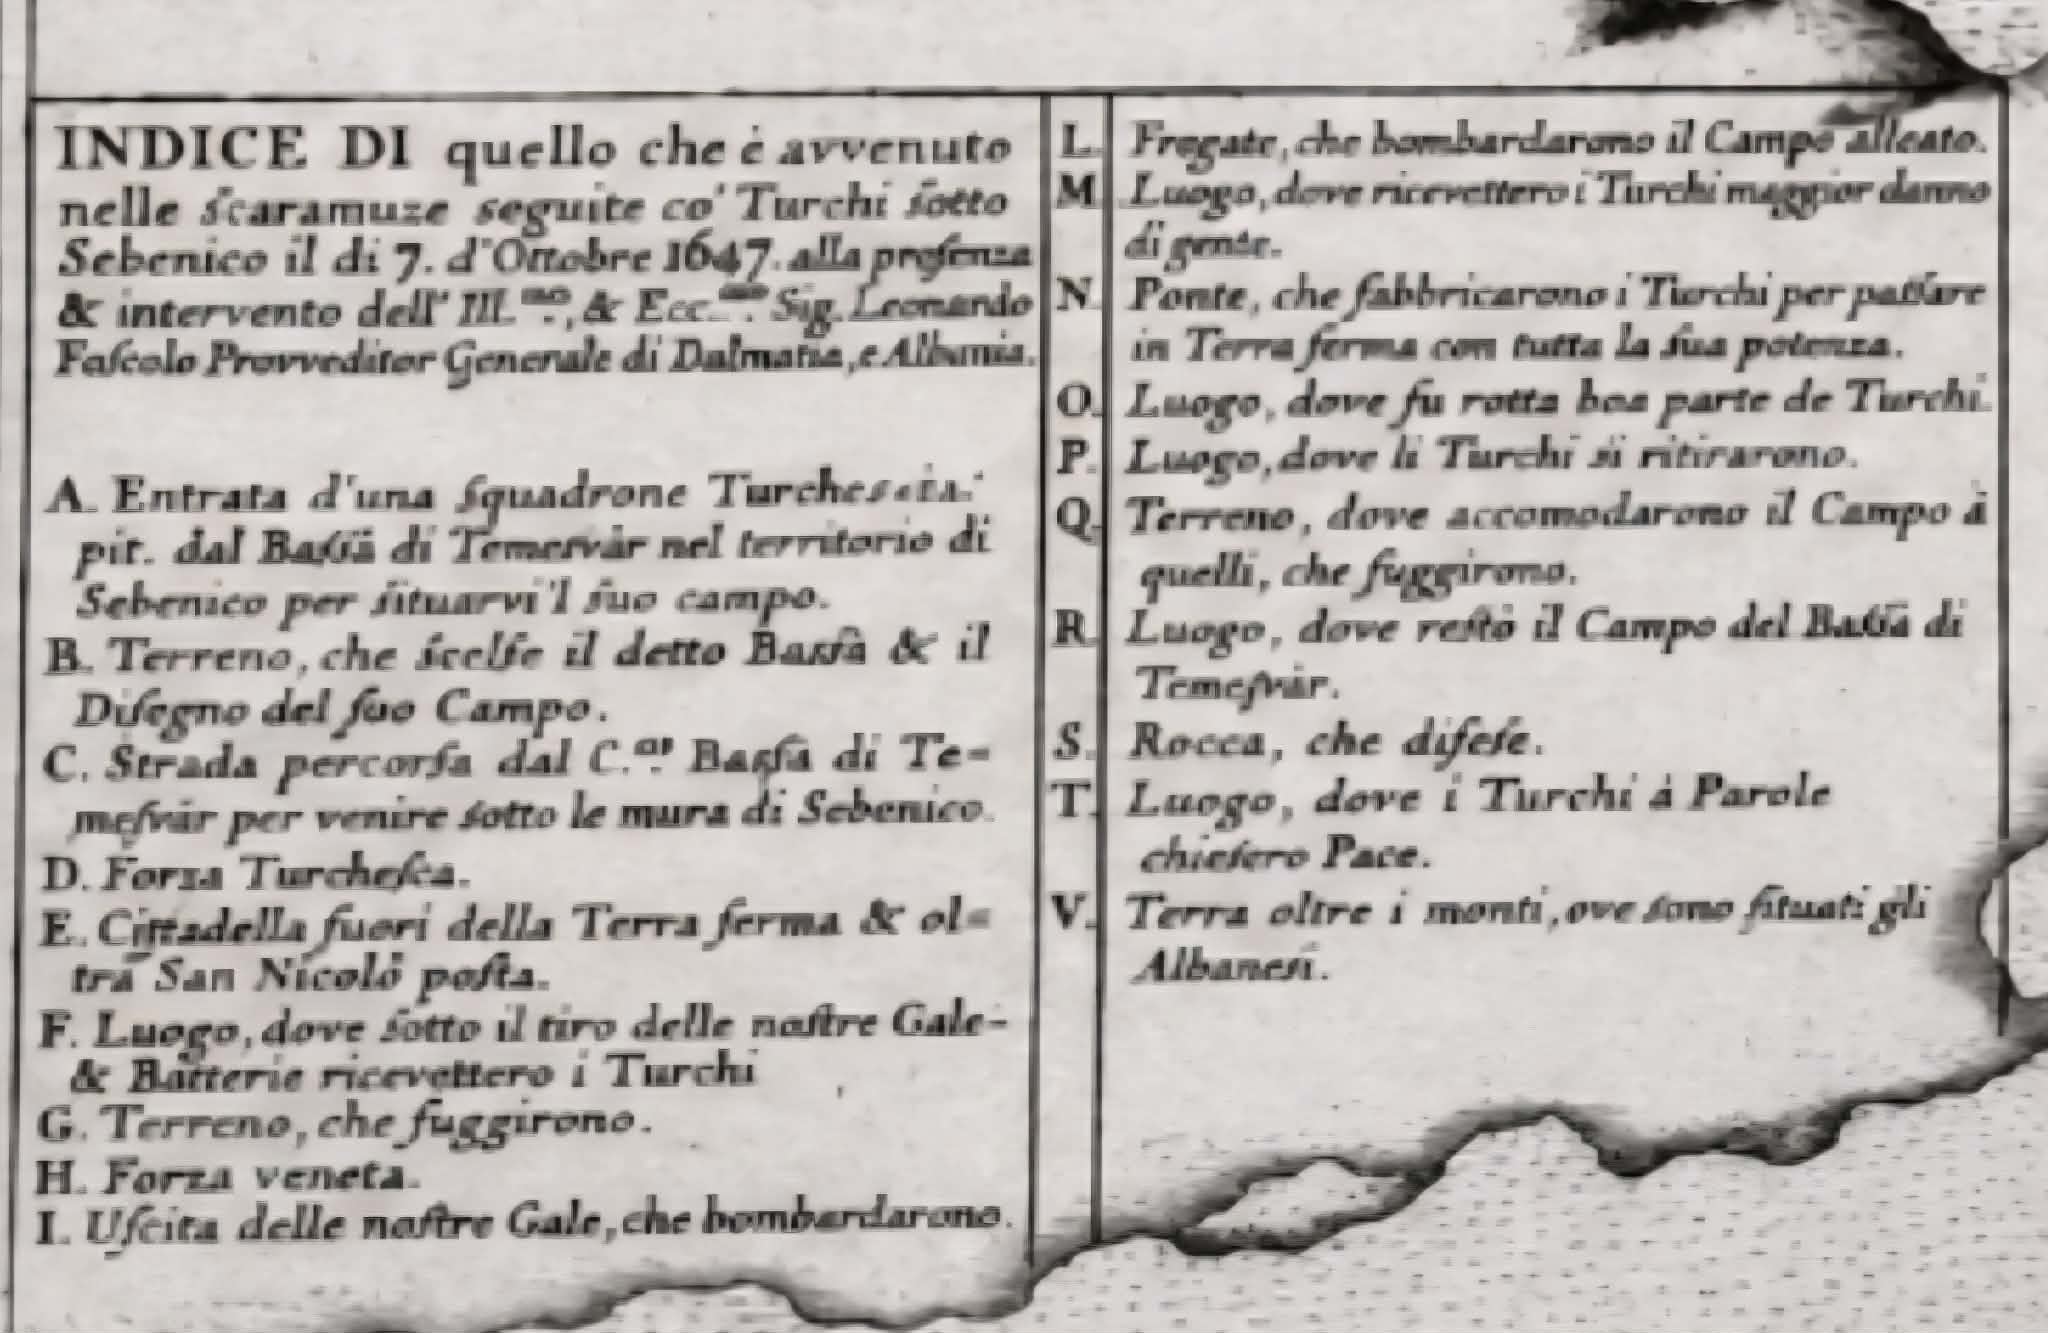 INDICE DI quello che è avvenuto
nelle ſcaramuze seguite co' Turchi ſotto
Sebenico il di 7. d'Ottobre 1647. alla preſenza
& intervento dell' Ill.mo, & Ecc.mo Sig. Leonardo
Foſcolo Provveditor Generale di Dalmatia, e Albania.
A. Entrata d'una ſquadrone Turchesca
pit. dal Baſsà di Temesvàr nel territorio di
Sebenico per ſituarvi 'l ſuo campo.
B. Terreno, che ſcelſe il detto Basſà & il
Diſegno del ſuo Campo.
C. Strada percorſa dal C. Basſà di Te=
meſvàr per venire sotto le mura di Sebenico.
D. Forza Turcheſca.
E. Cittadella fuori della Terra ferma & ol=
tra San Nicolò poſta.
F. Luogo, dove ſotto il tiro delle noſtre Gale-
& Batterie ricevettero i Turchi
G. Terreno, che fuggirono.
H. Forza veneta.
I. Uſcita delle noſtre Gale, che bombardarono.
L. Fregate, che bombardarono il Campo alleato.
M. Luogo, dove ricevettero i Turchi maggior danno
di gente.
N. Ponte, che fabbricarono i Turchi per paſſare
in Terra ferma con tutta la ſua potenza.
O. Luogo, dove fu rotta boa parte de Turchi.
P. Luogo, dove li Turchi si ritirarono.
Q. Terreno, dove accomodarono il Campo à
quelli, che fuggirono.
R. Luogo, dove reſtò il Campo del Baſsà di
Temeſvàr.
S. Rocca, che difeſe.
T. Luogo, dove i Turchi à Parole
chieſero Pace.
V. Terra oltre i monti, ove sono ſituati gli
Albanesi.